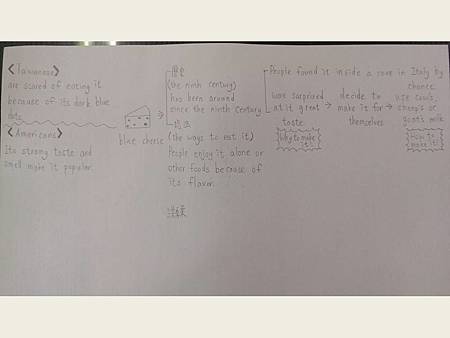 《Taiwanese》
are scared of eating it
because of its dark blue
dots
《Americans》
Its strong taste and
smell make it popular.
blue cheese
歷史
(the ninth century)
has been around
since the ninth Century
吃法
(the ways to eat it)
People enjoy it alone or
other foods because of
its flavor.
People found it inside a cave in Italy by
chance.
was surprised
at it great
taste
Why to make
it?
decide to
make it for
themselves
use cow's,
sheep's or
goat's milk
How to
make it?